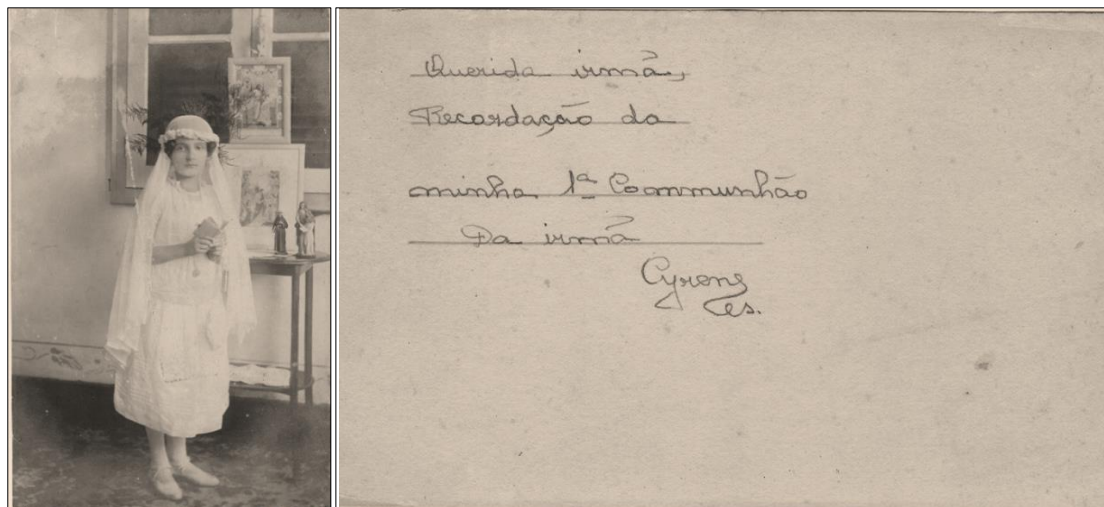 Querida irmã,
Recordação da
minha 1ª Communhão
Da irmã